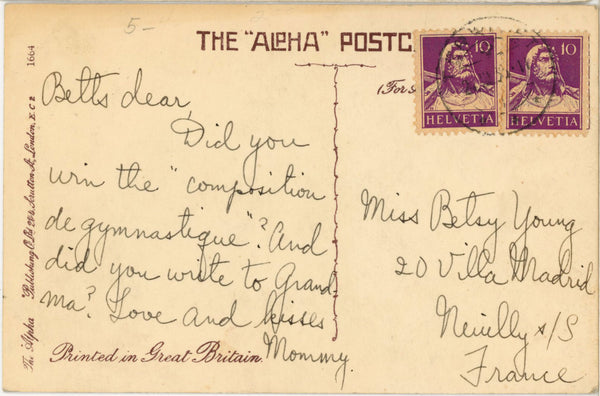 5-
THE "ALPHA" POSTC
(For
10
10
HELVETIA
HELVETIA
1664
The Alpha Publishing Co Ltd 2 & 4, Scrutton St, London, E.C 2
Betts dear,
Did you
win the "composition
de gymnastique"? And
did you write to Grand
ma? Love and kisses
Mommy.
Printed in Great Britain.
Miss Betsy Young
20 Villa Madrid
Neuilly s/S
France